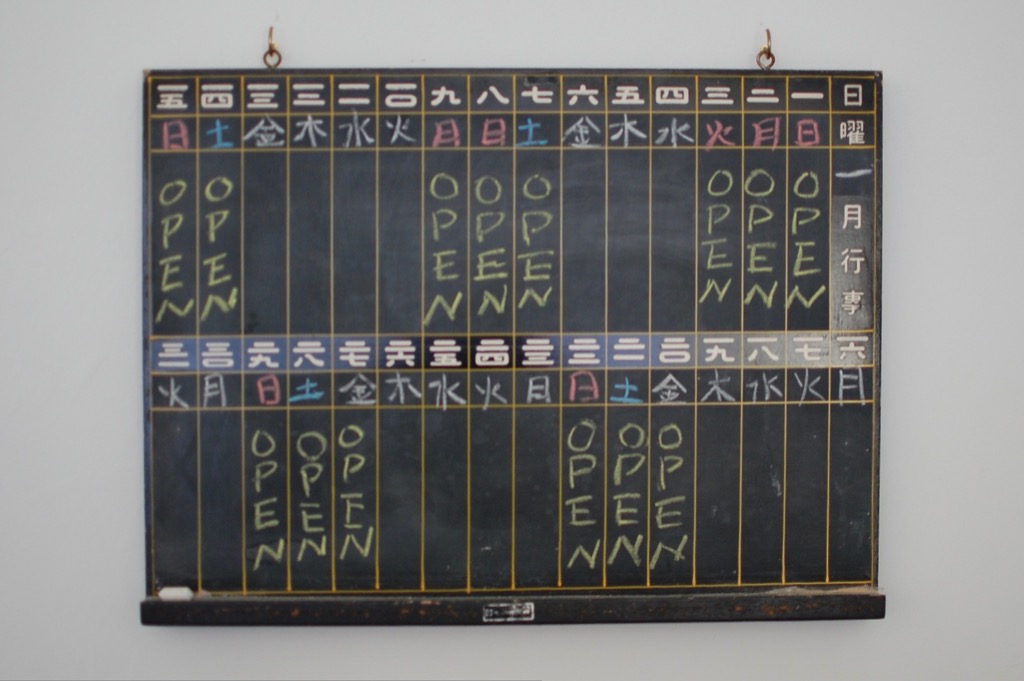 日 曜 一月行事
一 日 OPEN
二 月 OPEN
三 火 OPEN
四 水
五 木
六 金
七 土 OPEN
八 日 OPEN
九 月 OPEN
一〇 火
一一 水
一二 木
一三 金
一四 土 OPEN
一五 日 OPEN
一六 月
一七 火
一八 水
一九 木
二〇 金 OPEN
二一 土 OPEN
二二 日 OPEN
二三 月
二四 火
二五 水
二六 木
二七 金 OPEN
二八 土 OPEN
二九 日 OPEN
三〇 月
三一 火